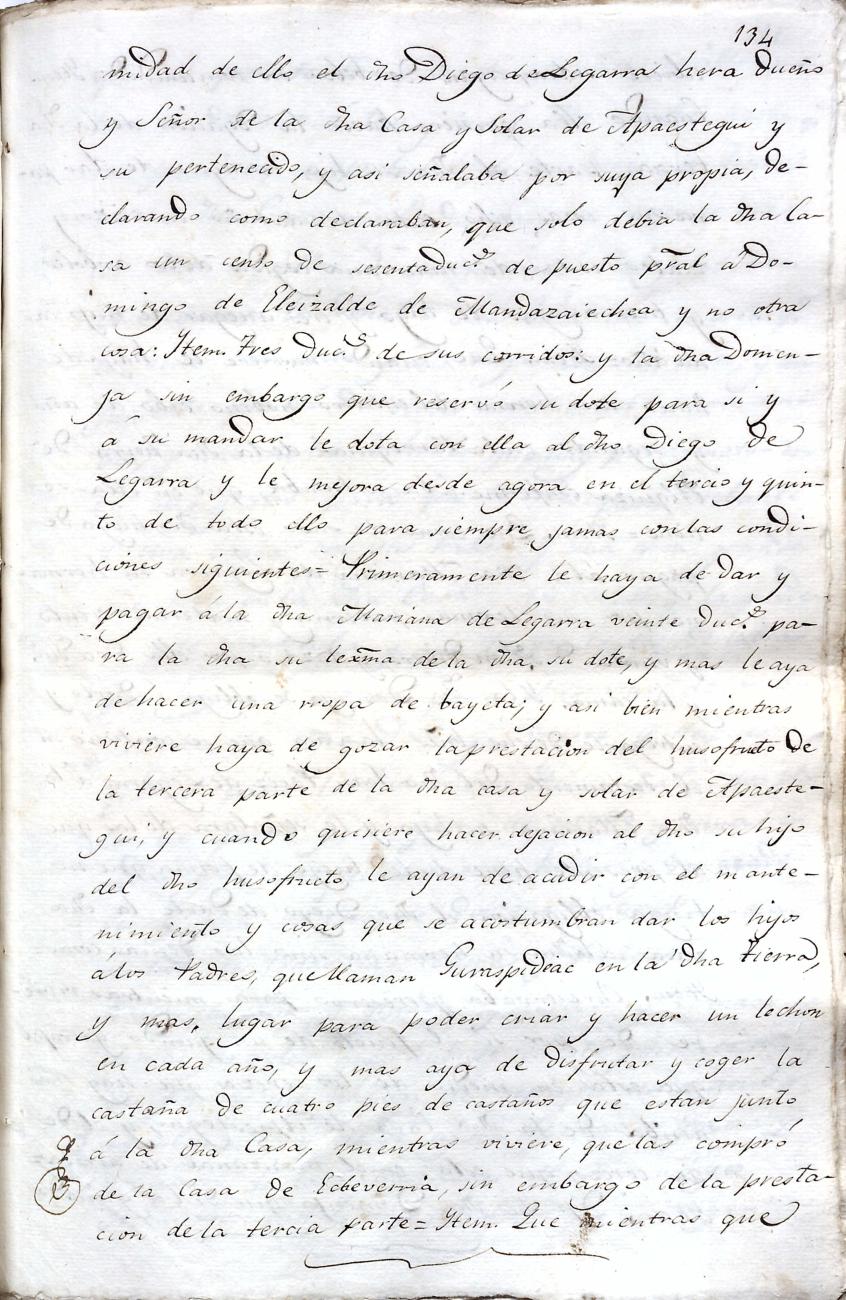 134
midad de ello el dho Diego de Legarra hera dueño
y Señor de la dha Casa y Solar de Apaestegui y
su pertenecido, y asi señalaba por suya propia, de-
clarando como declaraban, que solo debia la dha Ca-
sa un censo de sesenta duc.s de puesto pral a Do-
mingo de Eleizalde de Mandazaiechea y no otra
cosa: Item. Tres Duc.s de sus corridos: y la dha Domen-
ja sin embargo que reservó su dote para si y
á su mandar le dota con ella al dho Diego de
Legarra y le mejora desde agora en el tercio y quin-
to de todo ello para siempre jamas con las condi-
ciones siguientes = Primeramente le haya de dar y
pagar á la dha Mariana de Legarra veinte Duc.s pa-
ra la dha su lexma de la dha su dote, y mas le aya
de hacer una rropa de bayeta; y asi bien mientras
viviere haya de gozar la prestacion del husofruto de
la tercera parte de la dha casa y solar de Apaeste-
gui, y cuando quisiere hacer dejacion al dho su hijo
del dho husofructo le ayan de acudir con el mante-
nimiento y cosas que se acostumbran dar los hijos
á los Padres, que llaman Guraspidiac en la dha tierra,
y mas, lugar para poder criar y hacer un lechon
en cada año, y mas aya de disfrutar y coger la
castaña de cuatro pies de castaños que estan junto
á la dha Casa, mientras viviere, que las compró
de la Casa de Echeverria, sin embargo de la presta-
cion de la tercia parte = Item. Que mientras que